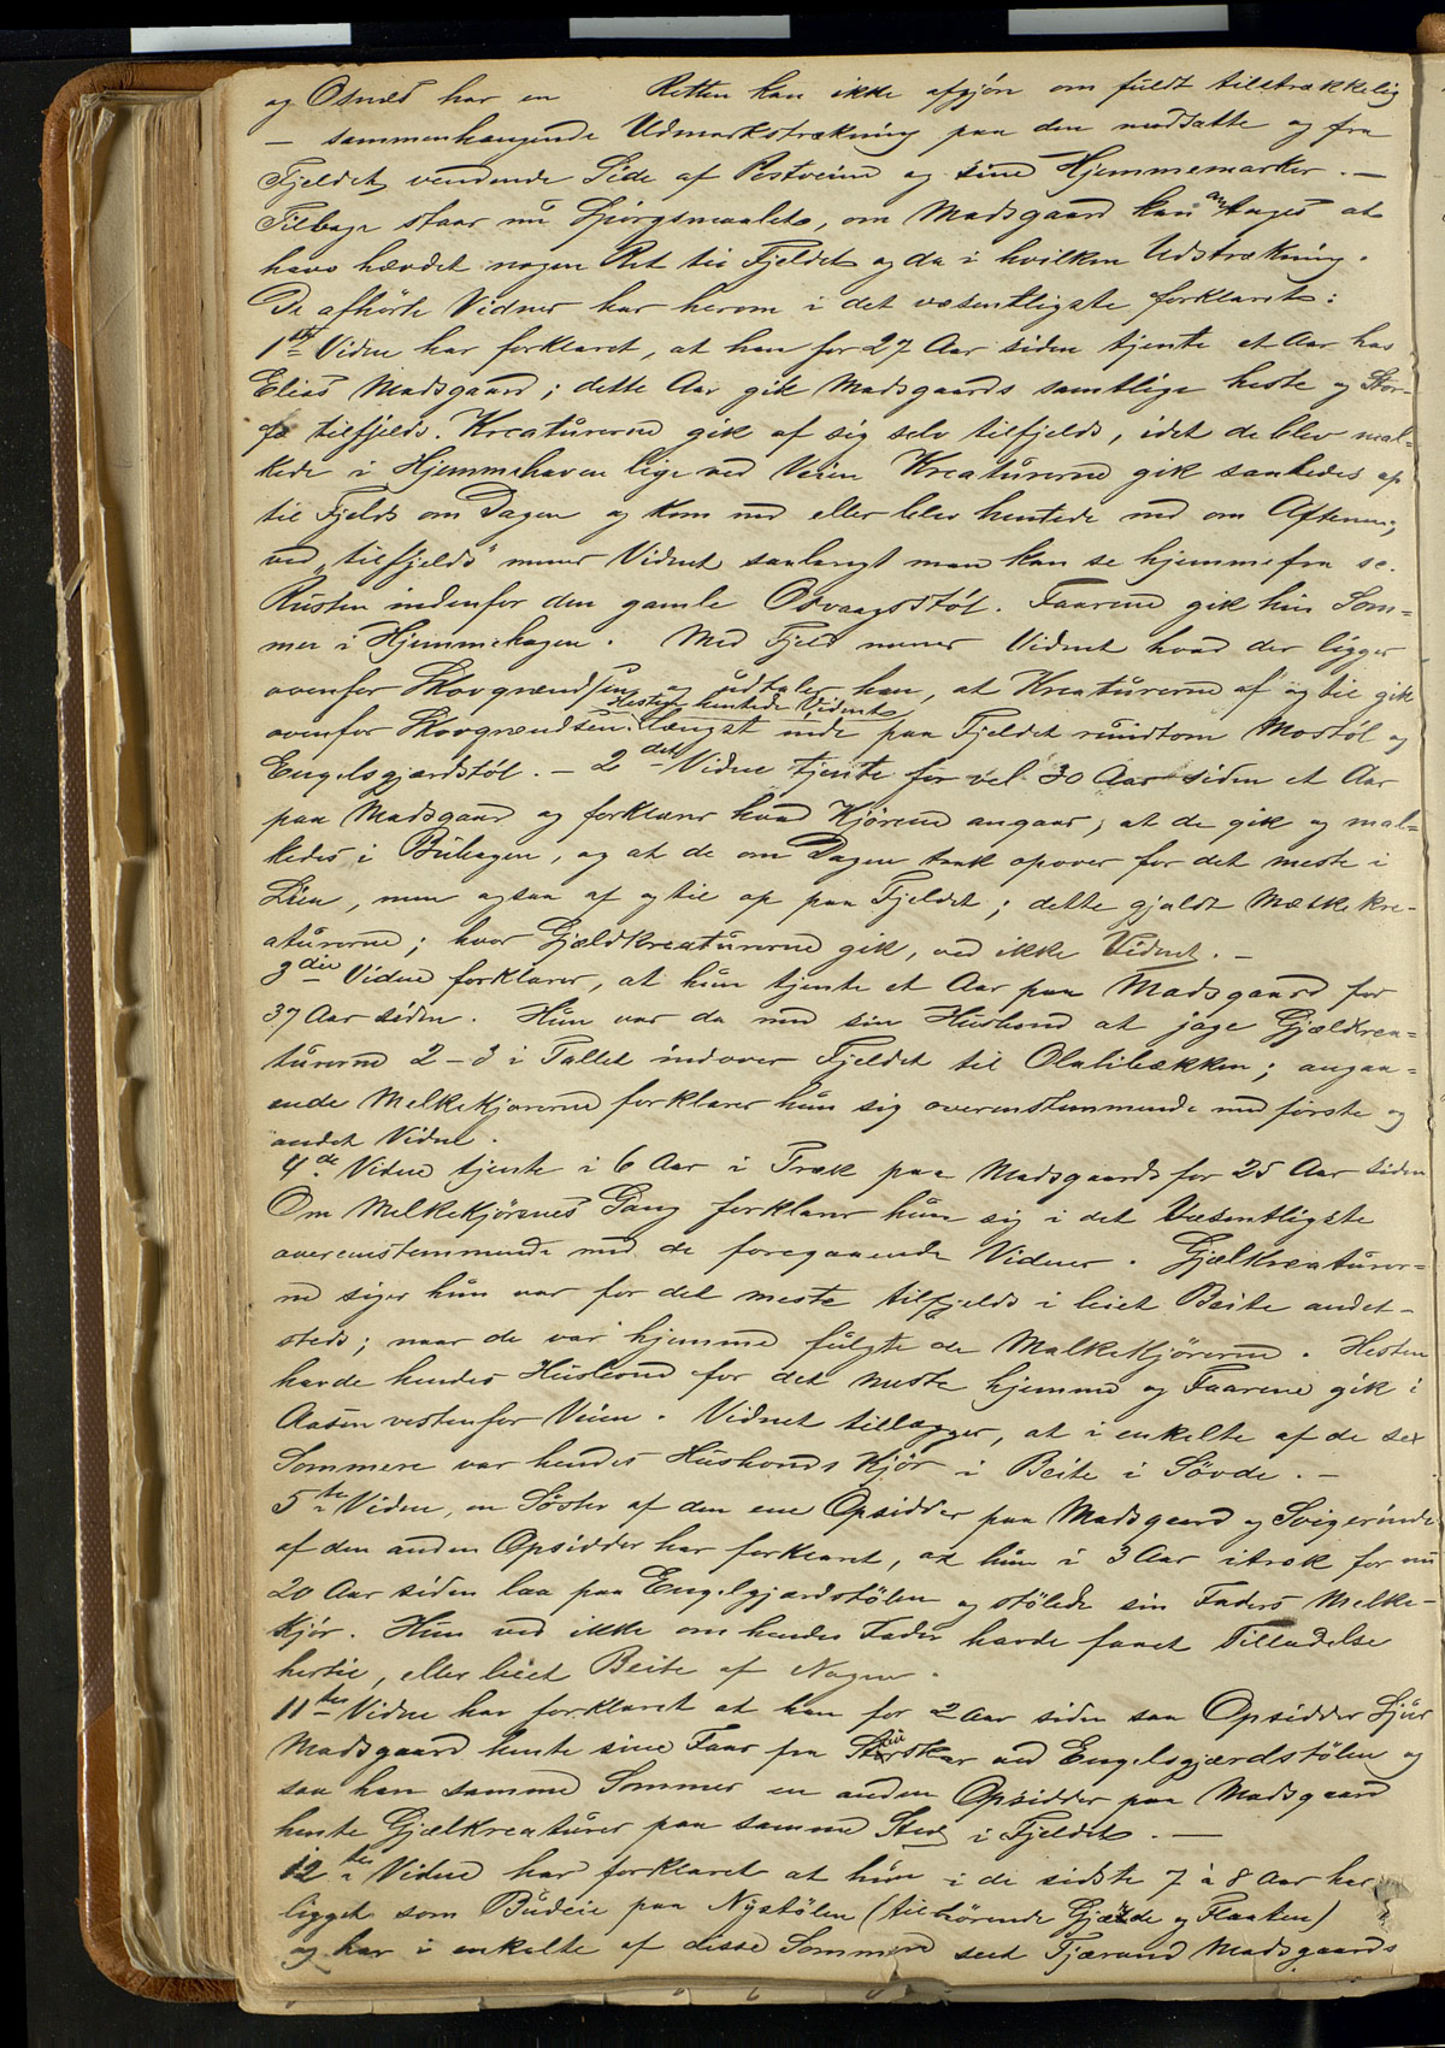 og Osnæs har en Retten kan ikke afgjöre om fuldt tilstrækkelig
— sammenhængende Udmarkstrækning paa den modsatte og fra
Fjeldet vendende Side af Postveien og sine Hjemmemarker. —
Tilbage staar nu Spörgsmaalet, om Madsgaard kan antages at
have hævdet nogen Ret til Fjeldet og da i hvilken Udstrækning.
De afhörte Vidner har herom i det væsentligste forklaret:
1ste Vidne har forklaret, at han for 27 Aar siden tjente et Aar hos
Elias Madsgaard; dette Aar gik Madsgaards samtlige heste og Stor-
fæ tilfjelds. Kreaturerne gik af sig selv tilfjelds, idet de blev mal-
kede i Hjemmehaven lige ved Veien Kreaturerne gik saaledes op
til Fjelds om Dagen og kom ned eller blev hentede ned om Aftenen;
ved „tilfjelds" mener Vidnet saalangt man kan se hjemmefra se.
Rusten indenfor den gamle Osvaagsstöl. Faarene gik hin Som-
mer i Hjemmehagen. Med Fjeld mener Vidnet hvad der ligger
ovenfor Skovgrændsen og udtaler han, at Kreaturerne af og til gik
ovenfor Skovgrændsen. Hestene hentede Vidnet længst inde paa Fjeldet rundtom Mostöl og
Engelsgjærdstöl. — 2det Vidne tjente for vel 30 Aar siden et Aar
paa Madsgaard og forklarer hvad Kjörene angaar, at de gik og mal-
kedes i Buhagen, og at de om Dagen trak opover for det meste i
Lien, men ogsaa af og til op paa Fjeldet; dette gjaldt Melkekre-
aturerne; hvor Gjældkreaturerne gik, ved ikke Vidnet. —
3die Vidne forklarer, at hun tjente et Aar paa Madsgaard for
37 Aar siden. Hun var da med sin Husbond at jage Gjældkrea-
turerne 2-3 i Tallet indover Fjeldet til Olalibækken; angaa-
ende Melkekjørerne forklarer hun sig overenstemmende med første og
andet Vidne.
4de Vidne tjente i 6 Aar i Træk paa Madsgaard for 25 Aar siden
Om Melkekjörenes Gang forklarer hun sig i det Væsentligste
overenstemmende med de foregaaende Vidner. Gjælkreaturer-
ne siger hun var for det meste tilfjelds i leiet Beite andet-
steds; naar de var hjemme fulgte de Malkekjörerne. Hesten
havde hendes Husbond for det meste hjemme og Faarene gik i
Aasen vestenfor Veien. Vidnet tillægger, at i enkelte af de sex
Sommere var hendes Husbonds Kjör i Beite i Sövde. —
5te Vidne, en Söster af den ene Opsidder paa Madsgaard og Svigerinde
af den anden Opsidder har forklaret, at hun i 3 Aar itræk for nu
20 Aar siden laa paa Engelgjærdstölen og stölede sin Faders Melke-
kjör. Hun ved ikke om hendes Fader havde faaet Tilladelse
hertil, eller leiet Beite af Nogen.
11te Vidne har forklaret at han for 2 Aar siden saa Opsidder Sjur
Madsgaard hente sine Faar fra Storskar ved Engelsgjærdstölen og
saa han samme Sommer en anden Opsidder paa Madsgaard
hente Gjælkreaturer paa samme Sted i Fjeldet. —
12te Vidne har forklaret at hun i de sidste 7 à 8 Aar har
ligget som Budeie paa Nystölen (tilhörende Gjærde og Flaaten)
og har i enkelte af disse Sommere seet Fjærund Madsgaards